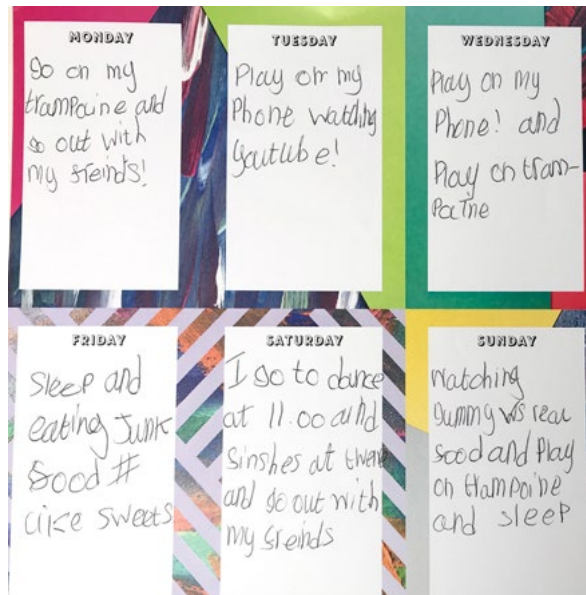 MONDAY
Go on my
trampoine and
go out with
my freinds!
TUESDAY
Play on my
Phone watching
Youtube!
WEDNESDAY
Play on my
Phone! and
Play on tram-
Poine
FRIDAY
Sleep and
eating Junk
food #
like sweets
SATURDAY
I go to dance
at 11.00 and
finshes at twelve
and go out with
my freinds
SUNDAY
Watching
Gummy vs real
food and Play
on trampoine
and sleep